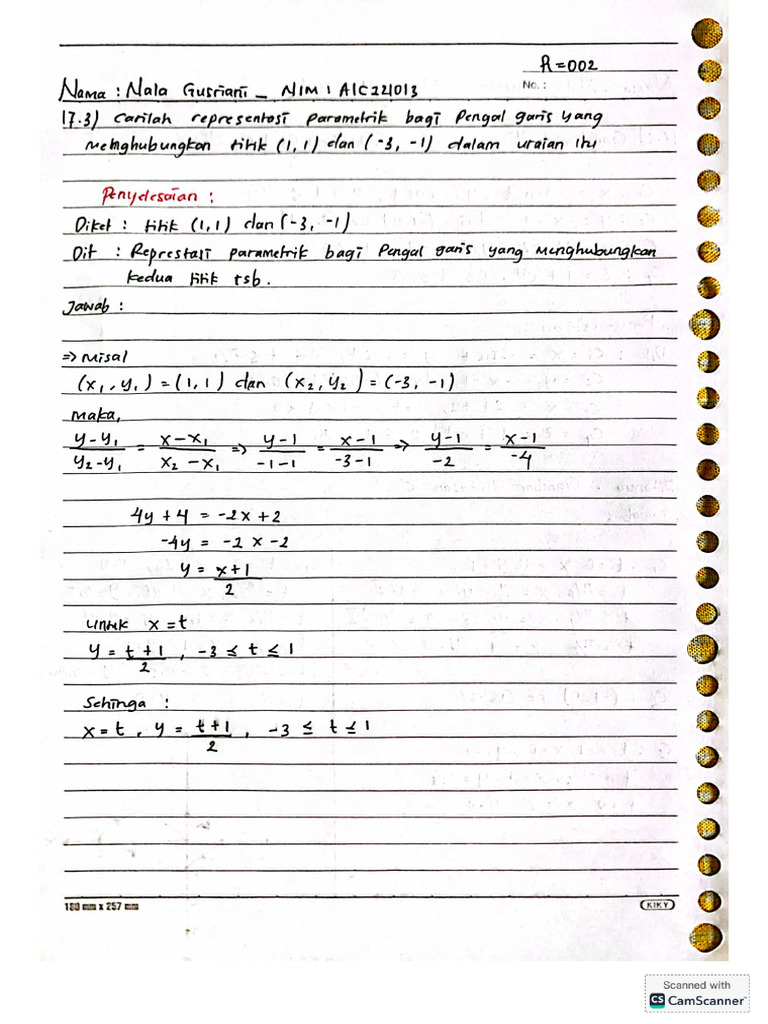 R=002
No. :
Nama : Nala Gusriani _ NIM : A1C221013
17.3) Carilah representasi parametrik bagi Pengal garis yang
menghubungkan titik (1, 1) dan (-3, -1) dalam uraian ini
Penyelesaian :
Diket : titik (1, 1) dan (-3, -1)
Dit : Represtasi parametrik bagi Pengal garis yang menghubungkan
kedua titik tsb.
Jawab :
=> Misal
(x₁, y₁) = (1, 1) dan (x₂, y₂) = (-3, -1)
Maka,
(y-y₁)/(y₂-y₁) = (x-x₁)/(x₂-x₁) => (y-1)/(-1-1) = (x-1)/(-3-1) => (y-1)/(-2) = (x-1)/(-4)
4y + 4 = -2x + 2
-4y = -2x -2
y = (x+1)/2
Untuk x = t
y = (t+1)/2 , -3 ≤ t ≤ 1
Sehinga :
x = t , y = (t+1)/2 , -3 ≤ t ≤ 1
180 mm x 257 mm
KIKY
Scanned with
CS CamScanner